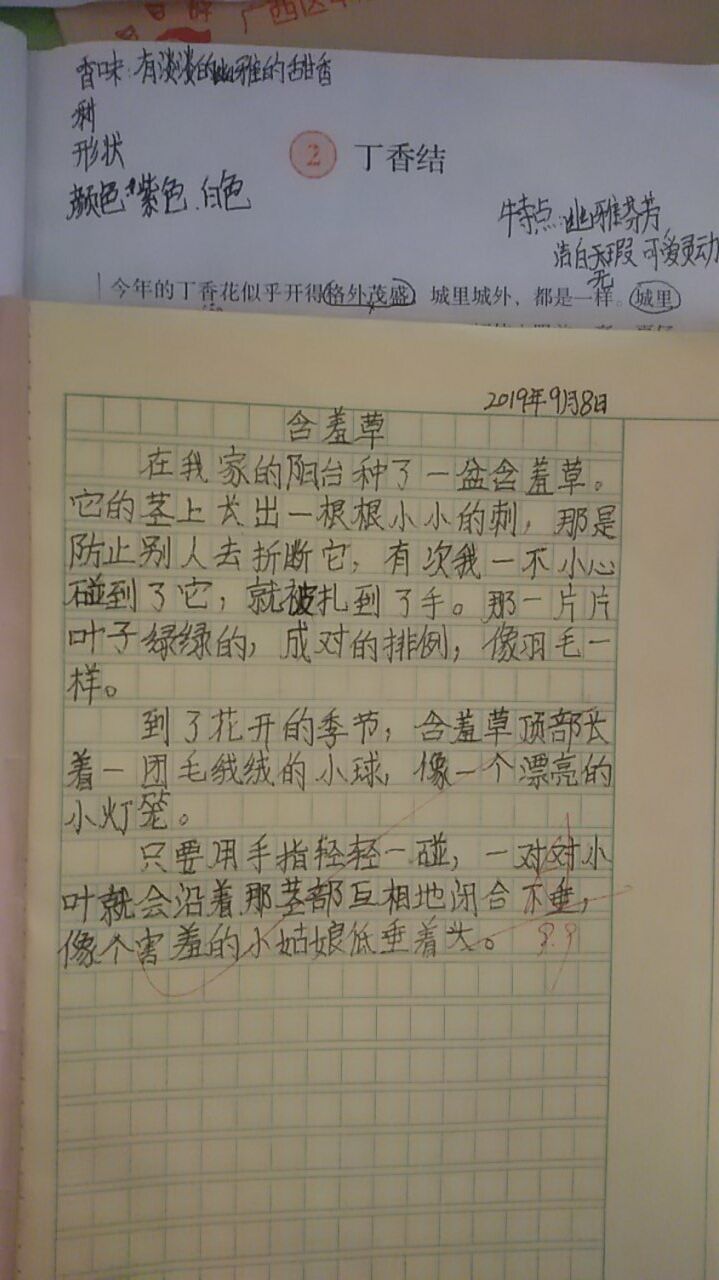 广西区
香味:有淡淡的幽雅的甜香
形状
② 丁香结
颜色:紫色、白色
特点:幽雅芬芳,
洁白无瑕 可爱灵动
无
今年的丁香花似乎开得格外茂盛,城里城外,都是一样。城里
2019年9月8日
含羞草
在我家的阳台种了一盆含羞草。
它的茎上长出一根根小小的刺,那是
防止别人去折断它,有次我一不小心
碰到了它,就被扎到了手。那一片片
叶子绿绿的,成对的排例,像羽毛一
样。
到了花开的季节,含羞草顶部长
着一团毛绒绒的小球,像一个漂亮的
小灯笼。
只要用手指轻轻一碰,一对对小
叶就会沿着那茎部互相地闭合下垂,
像个害羞的小姑娘低垂着头。 9.9